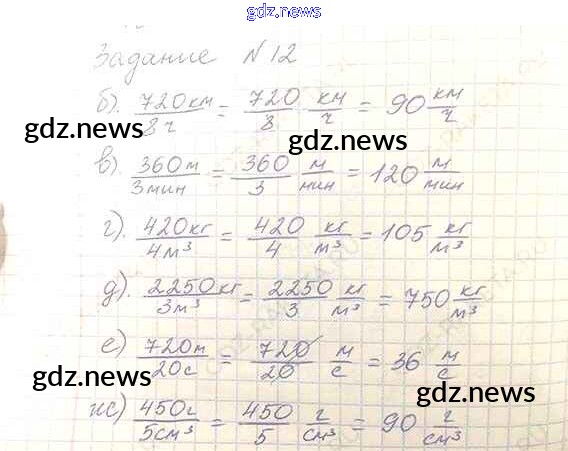 gdz.news
Задание N12
б). 720км/8ч = 720/8 км/ч = 90 км/ч
gdz.news gdz.news
в). 360м/3мин = 360/3 м/мин = 120 м/мин
г). 420кг/4м³ = 420/4 кг/м³ = 105 кг/м³
д). 2250кг/3м³ = 2250/3 кг/м³ = 750 кг/м³
е) 720м/20с = 720/20 м/с = 36 м/с
gdz.news gdz.news
ж) 450г/5см³ = 450/5 г/см³ = 90 г/см³